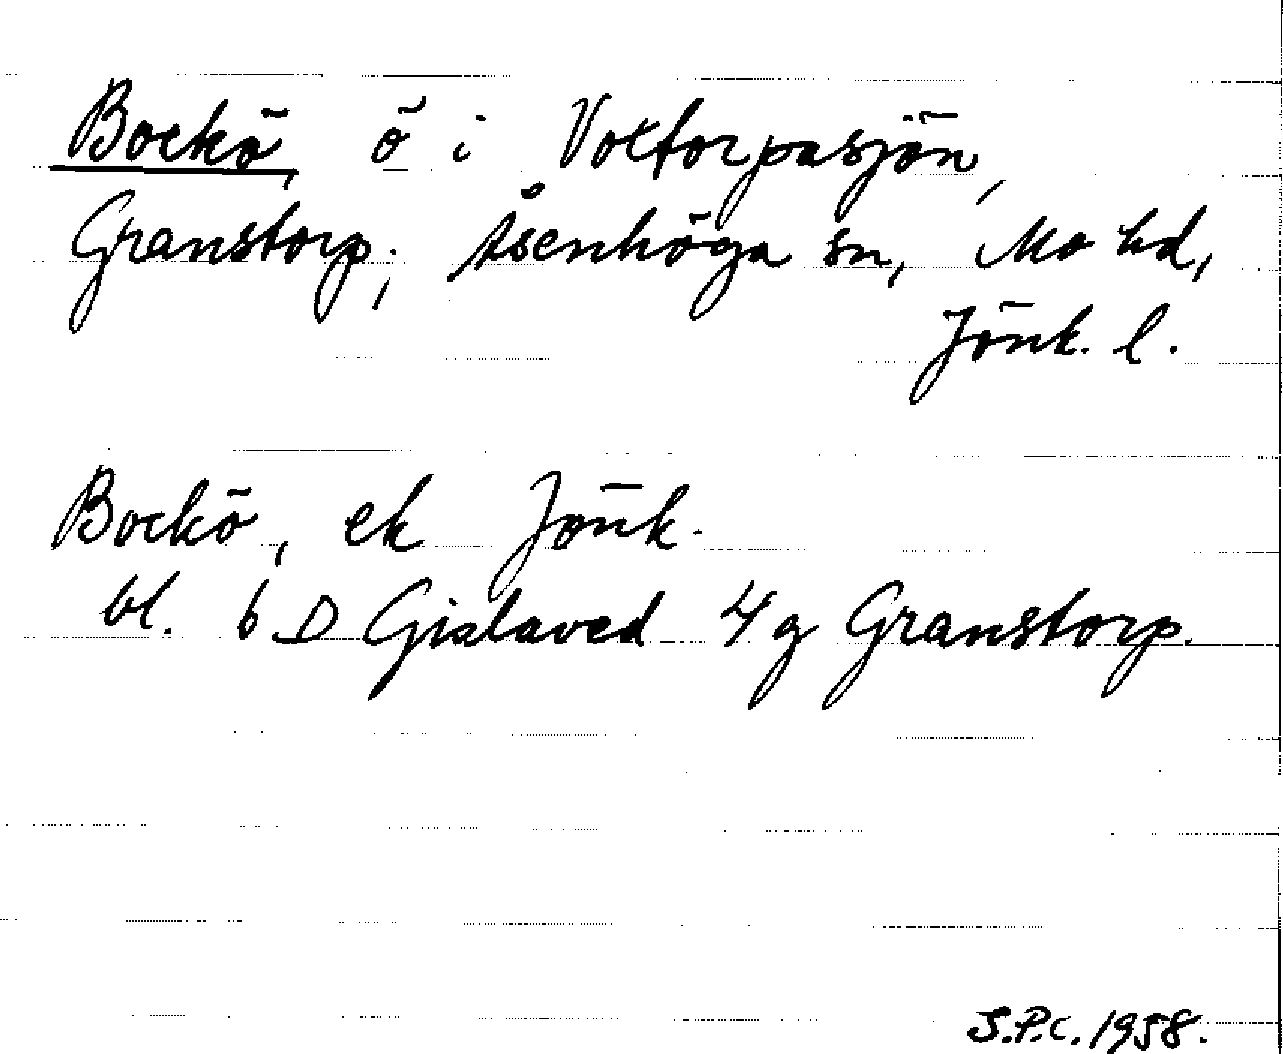 Bockö, ö i Voxtorpasjön,
Granstorp; Åsenhöga sn, Mo hd,
Jönk. l.
Bockö, ek Jönk.
bl. 6 D Gislaved 4 g Granstorp.
S.P.C. 1958.